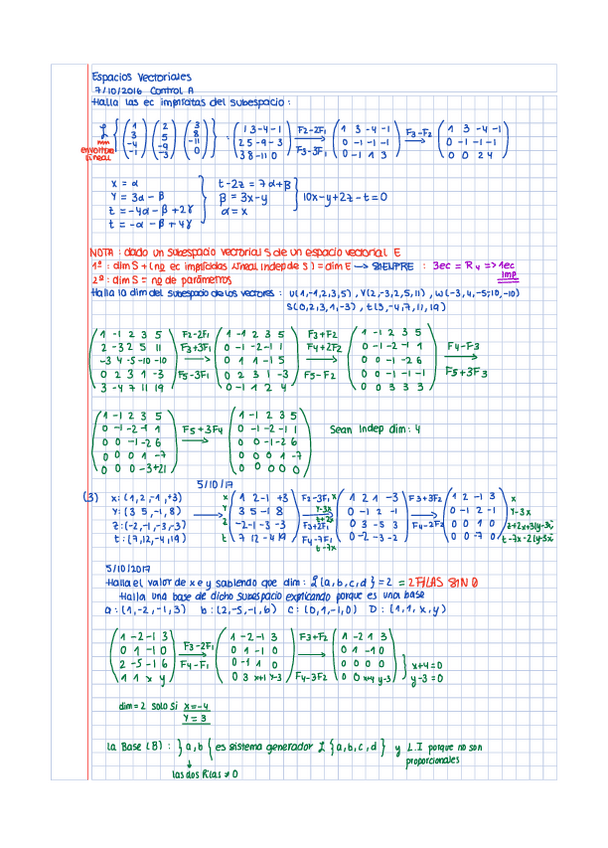 Espacios Vectoriales
7/10/2016 Control A
Halla las ec implícitas del subespacio:
L { (1 3 -4 -1) (2 5 -9 -3) (3 8 -11 0) } · (1 3 -4 -1 / 2 5 -9 -3 / 3 8 -11 0) F2-2F1 F3-3F1 → (1 3 -4 -1 / 0 -1 -1 -1 / 0 -1 1 3) F3-F2 → (1 3 -4 -1 / 0 -1 -1 -1 / 0 0 2 4)
envoltura lineal
x = α
Y = 3α - β
z = -4α - β + 2γ
t = -α - β + 4γ
t-2z = 7α+β
β = 3x-y
α = x
10x-y+2z-t=0
NOTA: dado un subespacio vectorial S de un espacio vectorial E
1º: dim S + (no ec implícidas lineal indep de S) = dim E → SIEMPRE : 3ec = R4 => 1ec imp
2º: dim S = no de parámetros
Halla la dim del subespacio de los vectores: u(1,-1,2,3,5), v(2,-3,2,5,11), w(-3,4,-5,-10,-10)
S(0,2,3,1,-3), t(3,-4,7,11,19)
(1 -1 2 3 5 / 2 -3 2 5 11 / -3 4 -5 -10 -10 / 0 2 3 1 -3 / 3 -4 7 11 19) F2-2F1 F3+3F1 → F5-3F1 (1 -1 2 3 5 / 0 -1 -2 -1 1 / 0 1 1 -1 5 / 0 2 3 1 -3 / 0 -1 1 2 4) F3+F2 F4+2F2 → F5-F2 (1 -1 2 3 5 / 0 -1 -2 -1 1 / 0 0 -1 -2 6 / 0 0 -1 -1 -1 / 0 0 3 3 3) F4-F3 → F5+3F3
(1 -1 2 3 5 / 0 -1 -2 -1 1 / 0 0 -1 -2 6 / 0 0 0 1 -7 / 0 0 0 -3 +21) F5+3F4 → (1 -1 2 3 5 / 0 -1 -2 -1 1 / 0 0 -1 -2 6 / 0 0 0 1 -7 / 0 0 0 0 0) Sean Indep dim: 4
5/10/17
(3) x:(1,2,-1,+3)
Y:(3 5,-1,8)
Z:(-2,-1,-3,-3)
t:(7,12,-4,19)
x Y z t (1 2 -1 +3 / 3 5 -1 8 / -2 -1 -3 -3 / 7 12 -4 19) F2-3F1 → F3+2F1 F4-7F1 x Y-3x t+2x t-7x (1 2 1 -3 / 0 -1 2 -1 / 0 3 -5 3 / 0 -2 -3 -2) F3+3F2 → F4-2F2 (1 2 -1 3 / 0 -1 2 -1 / 0 0 1 0 / 0 0 -7 0) x Y-3x
5/10/2017
Halla el valor de x e y sabiendo que dim: L{a,b,c,d} = 2 = 2 FILAS SIN 0
Halla una base de dicho subespacio explicando porque es una base
a:(1,-2,-1,3) b:(2,-5,-1,6) C:(0,1,-1,0) D:(1,1,x,y)
(1 -2 -1 3 / 0 1 -1 0 / 2 -5 -1 6 / 1 1 x y) F3-2F1 → F4-F1 (1 -2 -1 3 / 0 1 -1 0 / 0 -1 1 0 / 0 3 x+1 y-3) F3+F2 → F4-3F2 (1 -2 1 3 / 0 1 -1 0 / 0 0 0 0 / 0 0 x+4 y-3) } x+4=0 y-3=0
dim=2 solo si x=-4
Y=3
la Base (B): } a,b { es sistema generador L {a,b,c,d} y L.I porque no son
proporcionales
las dos filas ≠ 0